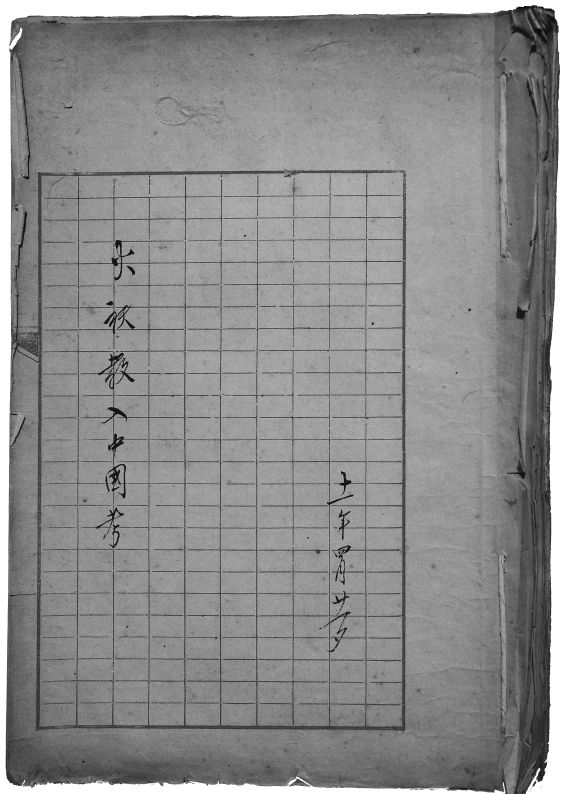 十一年四月廿
火祆教入中國考